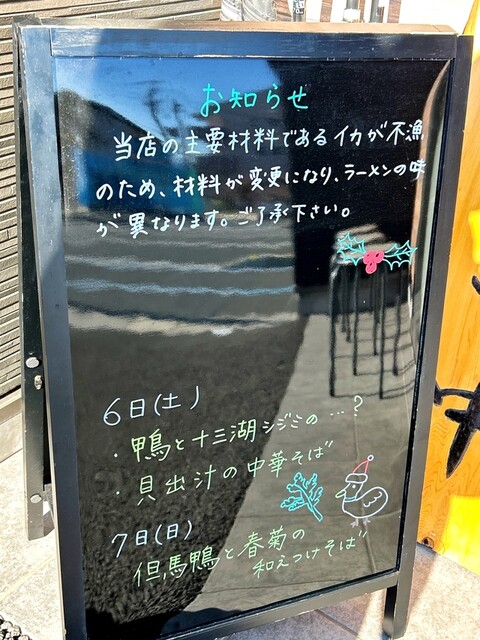 お知らせ
当店の主要材料であるイカが不漁
のため、材料が変更になり、ラーメンの味
が異なります。ご了承下さい。
6日(土)
・鴨と十三湖シジミの…?
・貝出汁の中華そば
7日(日)
但馬鴨と春菊の
和えつけそば